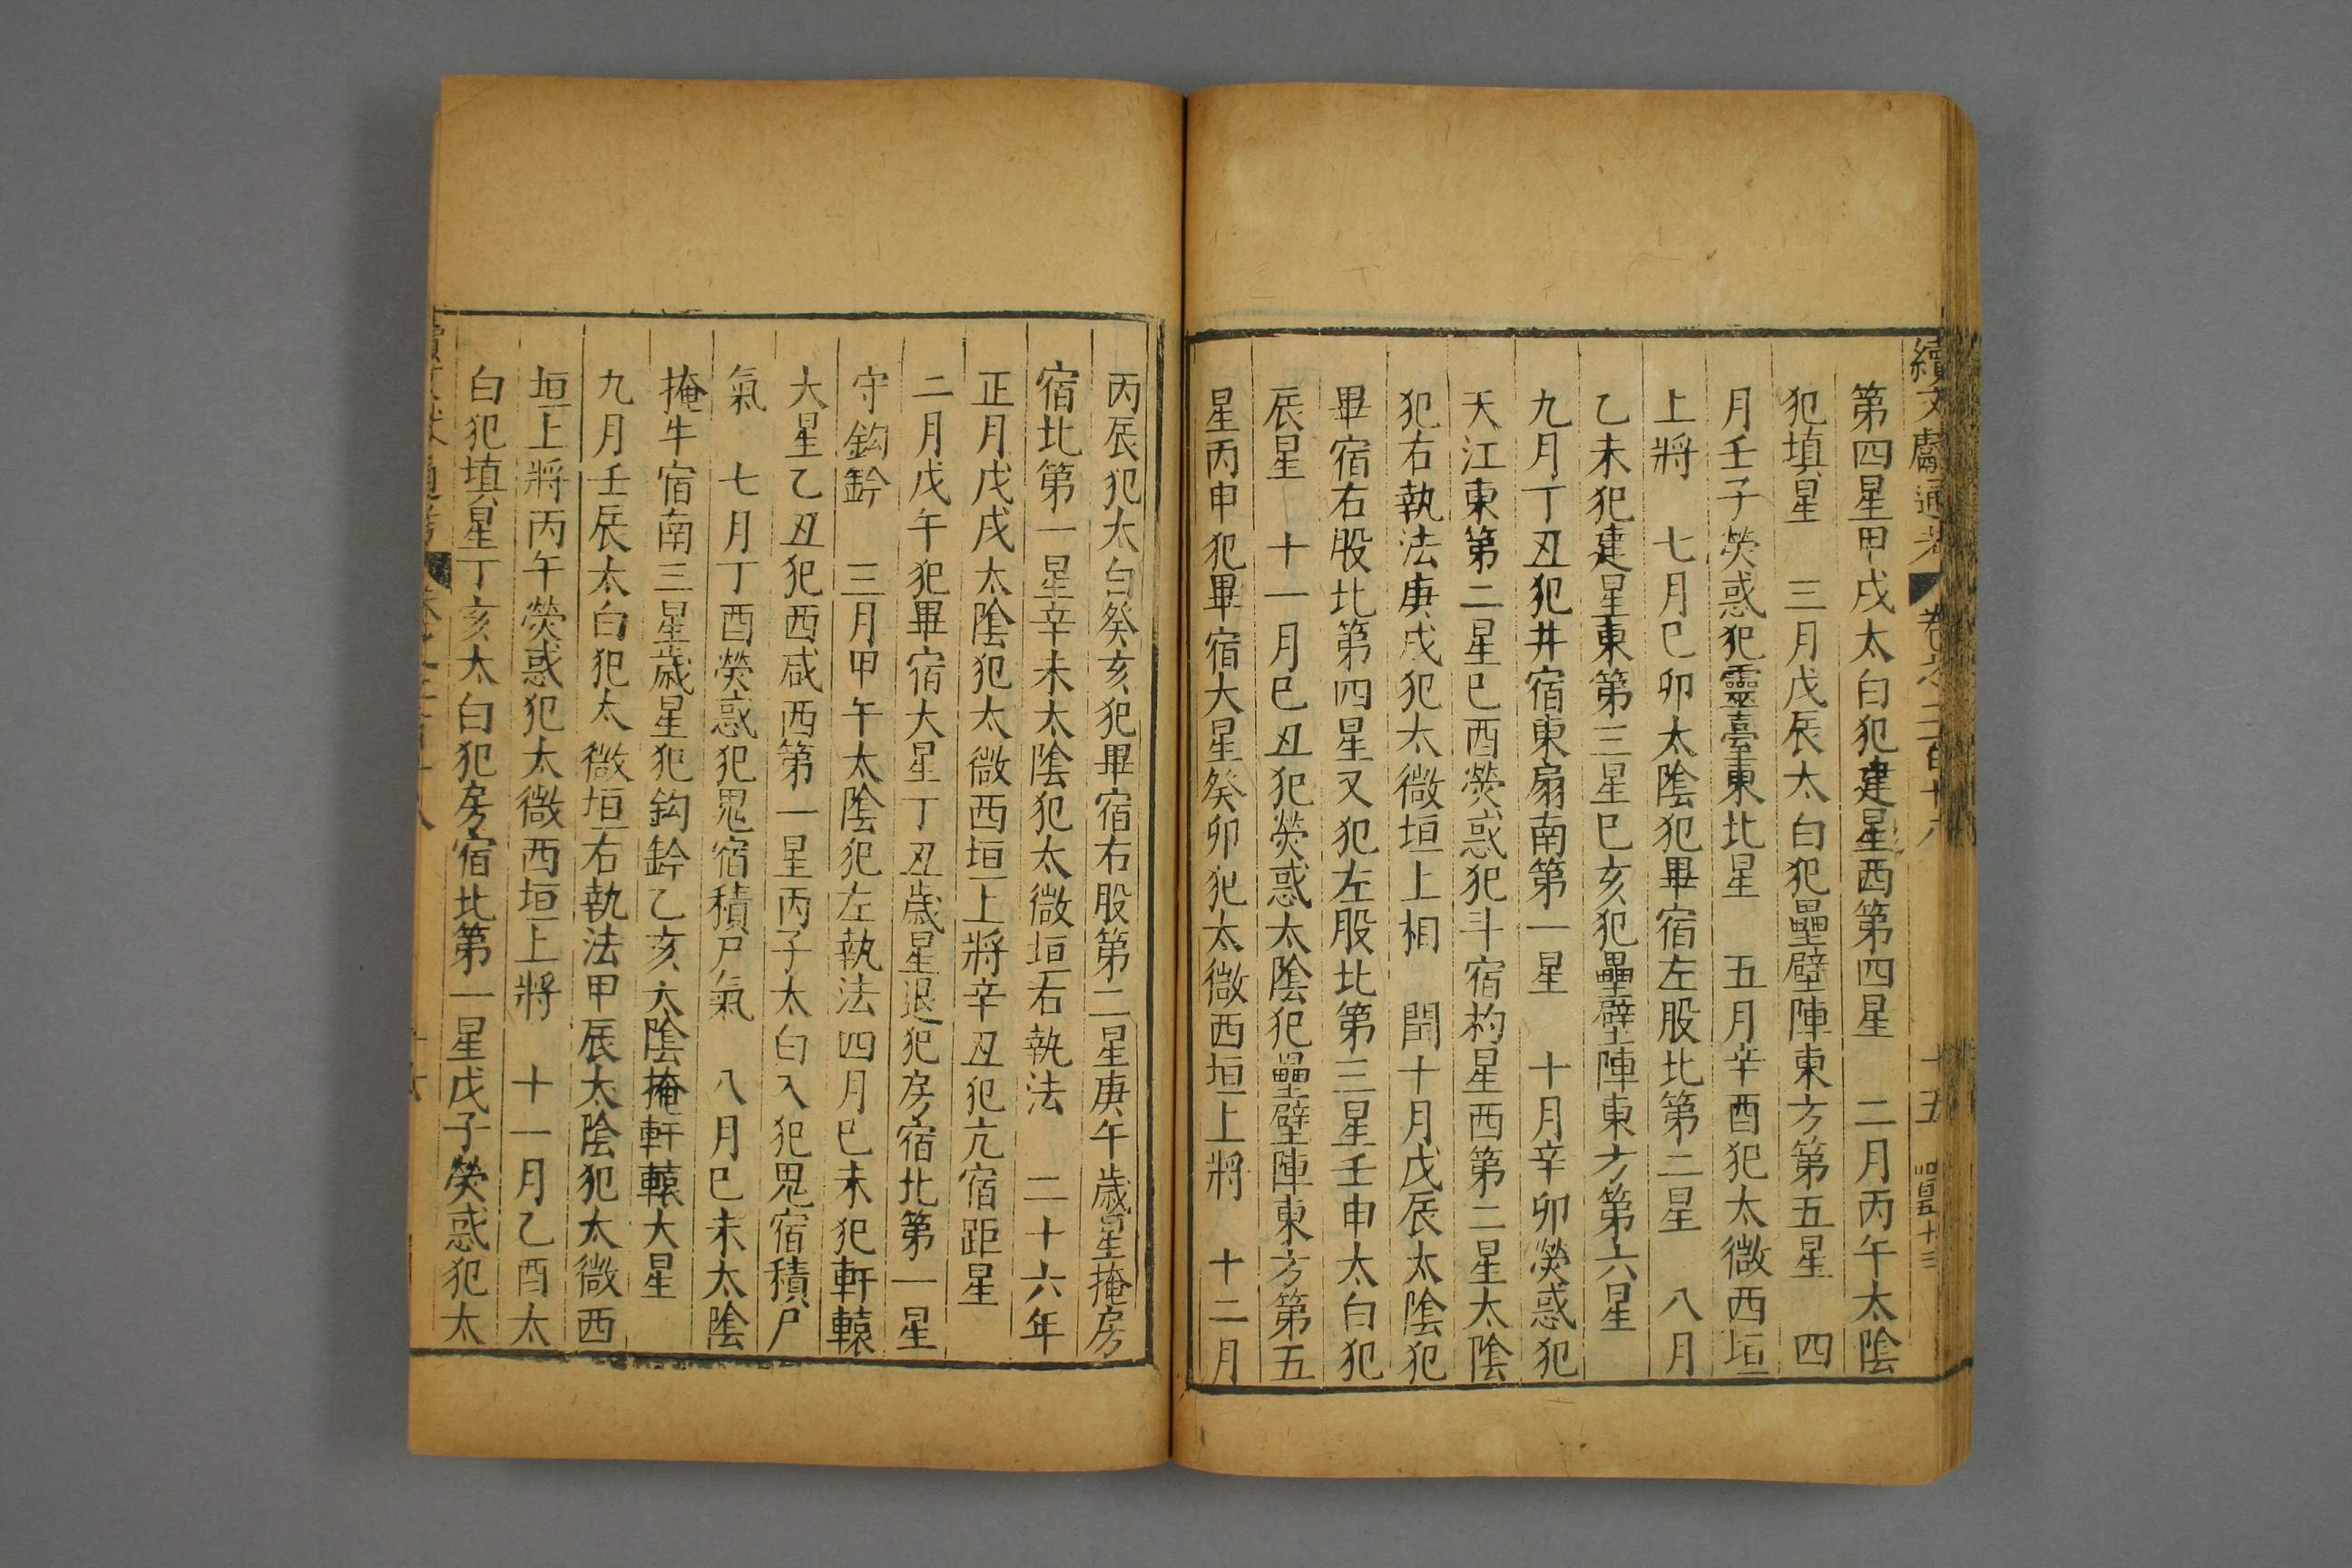 續文獻通考 卷之二百十八 十五
第四星甲戌太白犯建星西第四星 二月丙午太陰
犯填星 三月戊辰太白犯壘壁陣東方第五星 四
月壬子熒惑犯靈臺東北星 五月辛酉犯太微西垣
上將 七月己卯太陰犯畢宿左股北第二星 八月
乙未犯建星東第三星巳亥犯壘壁陣東方第六星
九月丁丑犯井宿東扇南第一星 十月辛卯熒惑犯
天江東第二星巳酉熒惑犯斗宿杓星西第二星太陰
犯右執法庚戌犯太微垣上相 閏十月戊辰太陰犯
畢宿右股北第四星又犯左股北第三星壬申太白犯
辰星 十一月巳丑犯熒惑太陰犯壘壁陣東方第五
星丙申犯畢宿大星癸卯犯太微西垣上將 十二月
丙辰犯太白癸亥犯畢宿右股第二星庚午歲星掩房
宿北第一星辛未太陰犯太微垣右執法 二十六年
正月戊戌太陰犯太微西垣上將辛丑犯亢宿距星
二月戊午犯畢宿大星丁丑歲星退犯房宿北第一星
守鈎鈐 三月甲午太陰犯左執法四月巳未犯軒轅
大星乙丑犯西咸西第一星丙子太白入犯鬼宿積尸
氣 七月丁酉熒惑犯鬼宿積尸氣 八月巳未太陰
掩牛宿南三星歲星犯鈎鈐乙亥太陰掩軒轅大星
九月壬辰太白犯太微垣右執法甲辰太陰犯太微西
垣上將丙午熒惑犯太微西垣上將 十一月乙酉太
白犯填星丁亥太白犯房宿北第一星戊子熒惑犯太